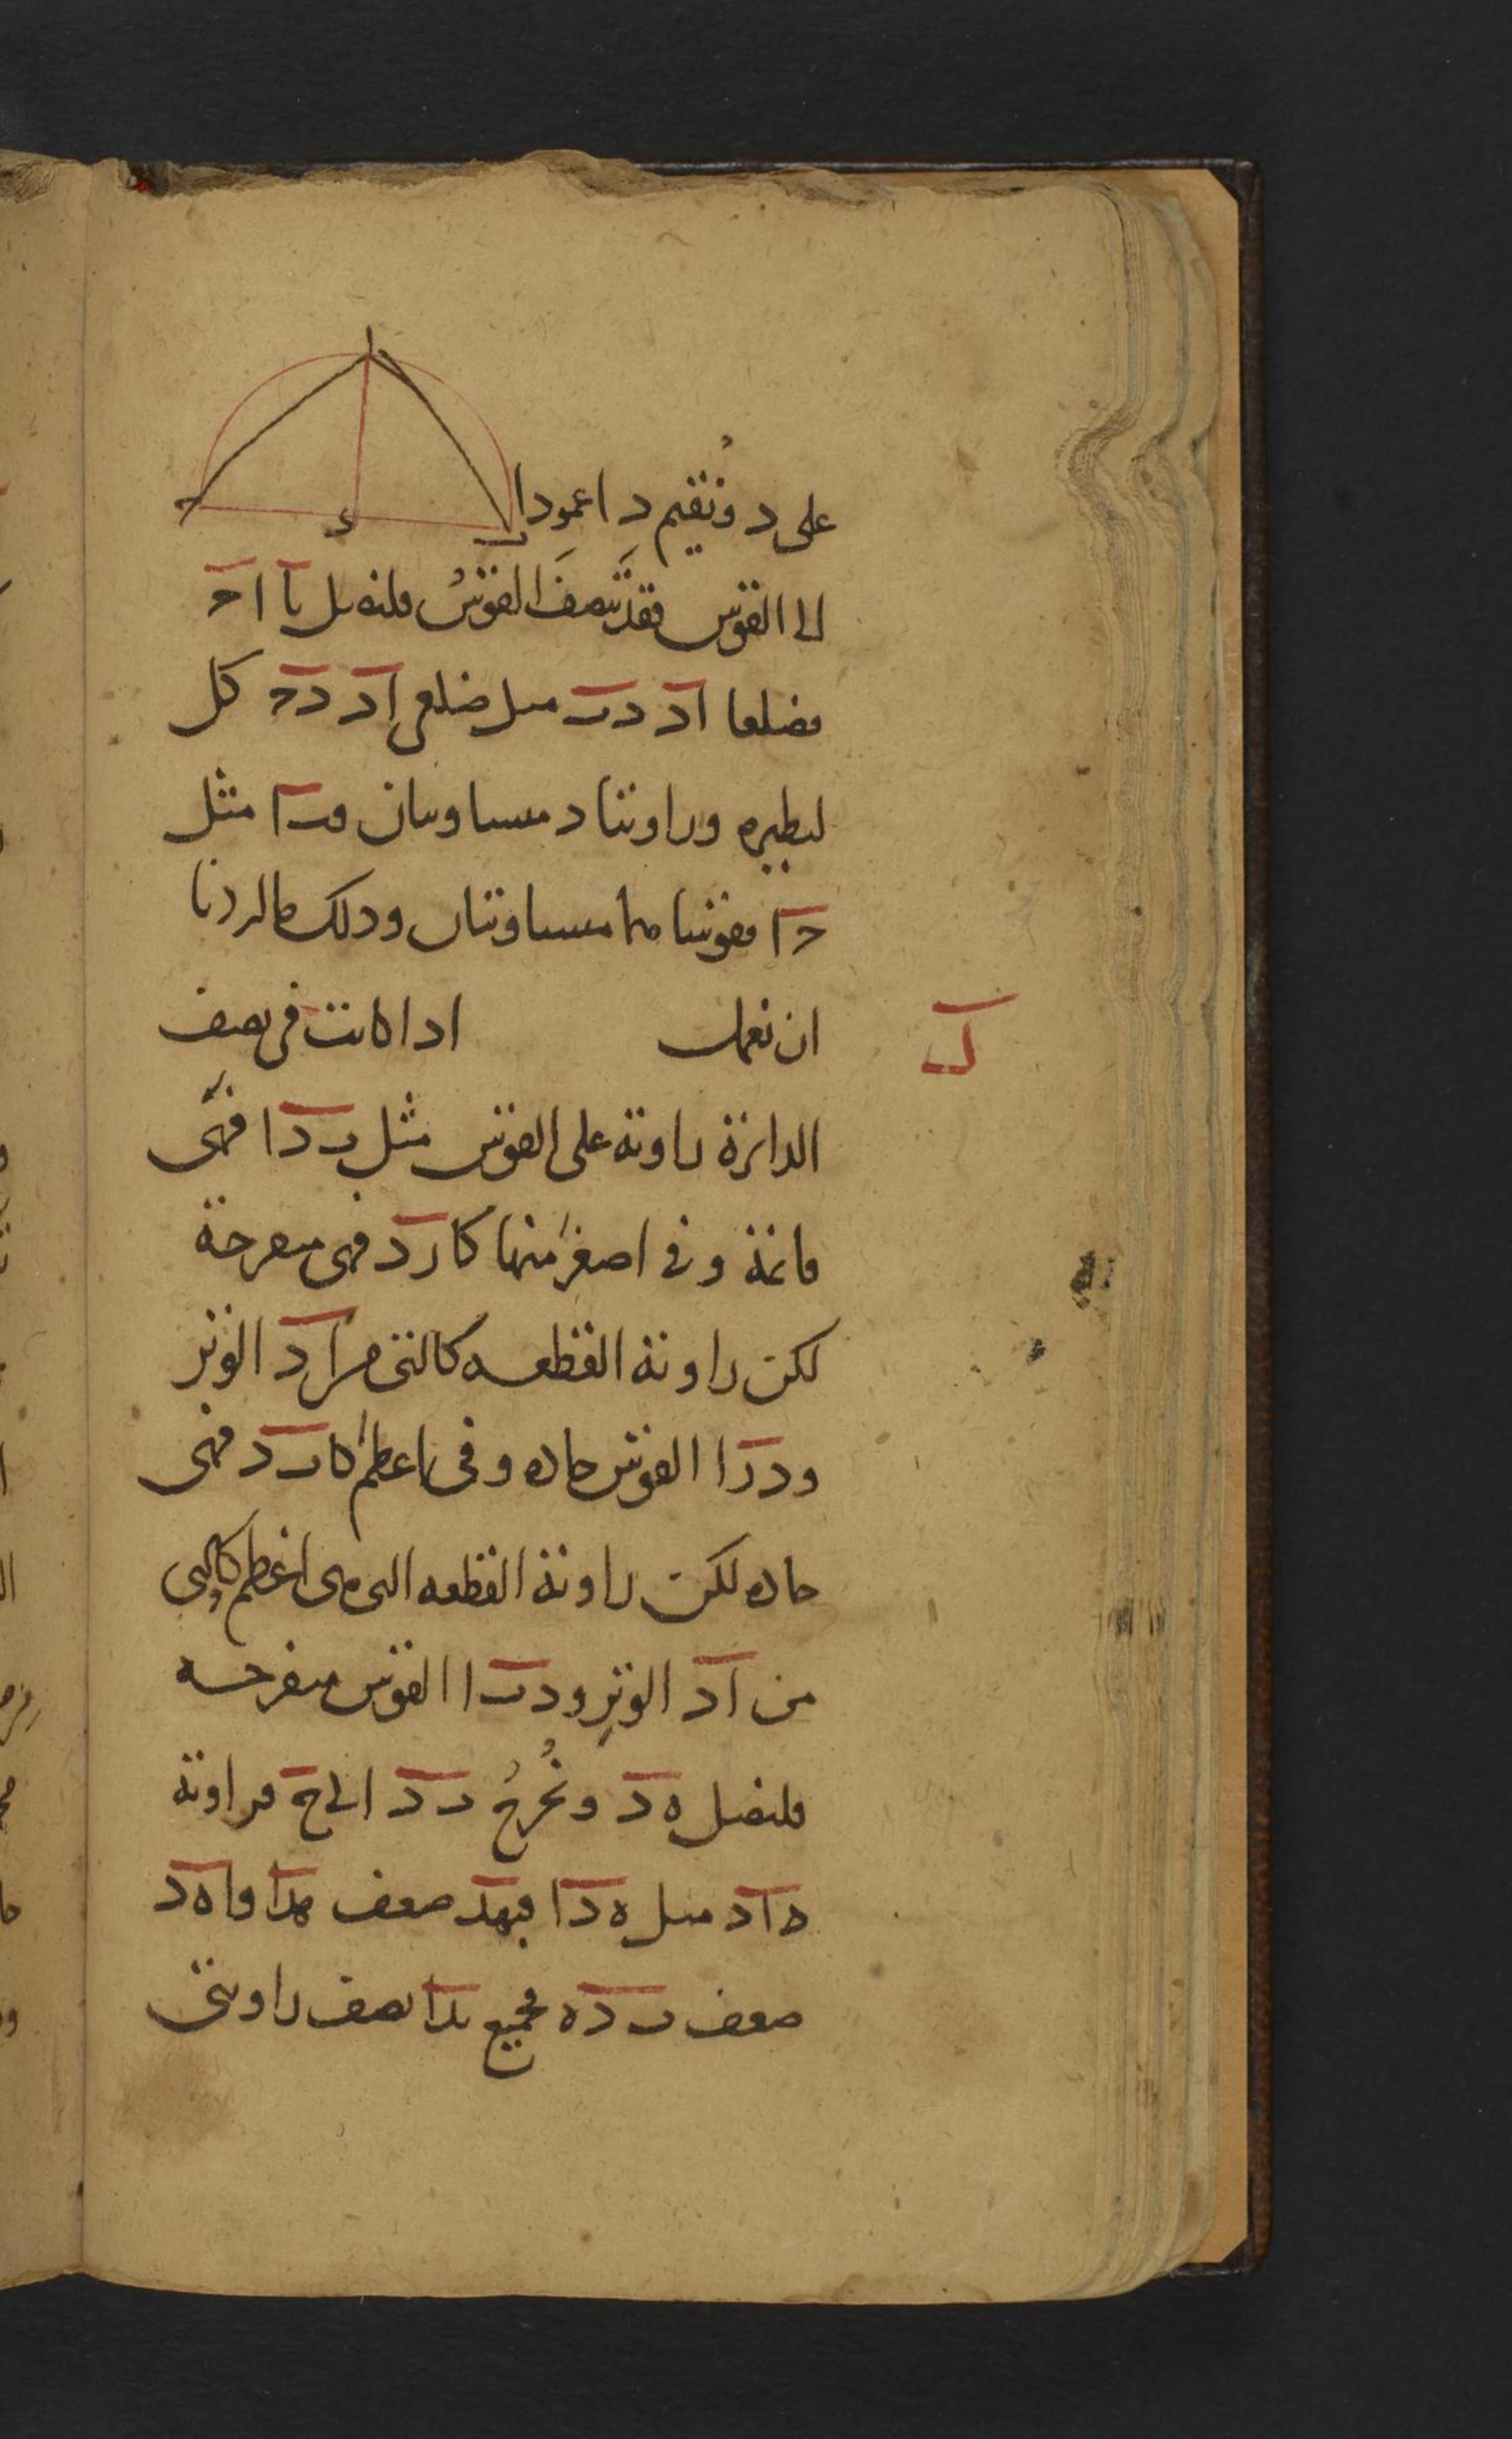 على د ونقيم د ا عمودا
الى القوس فقد ننصف القوس فلنصل ب ا ا ح
فضلعا ا د د ب مثل ضلعى ا د د ح كل
لنظيره وزاويتا د متساويتان و ب ا مثل
ح ا فقوساهما متساويتان وذلك ما اردنا
ان نعمل اذا كانت فى نصف
ل
الدائرة زاوية على القوس مثل ب د ا فهى
قائمة وفى اصغر منها كا ر د فهى منفرجة
لكن زاوية القطعه كالتى من ا د الوتر
و د ر ا القوس حاده وفى اعظم كا ب د فهى
حاده لكن زاوية القطعه التى هى اعظم كالتى
من ا د الوتر و د ب ا القوس منفرجه
فلنصل ه د ونخرج ب د الى ح فزاوية
ه ا د مثل ه د ا فبهد ضعف هدا و ا ه د
ضعف ب د ه فجميع بدا نصف زاويتى
ا
ح
ء
ب